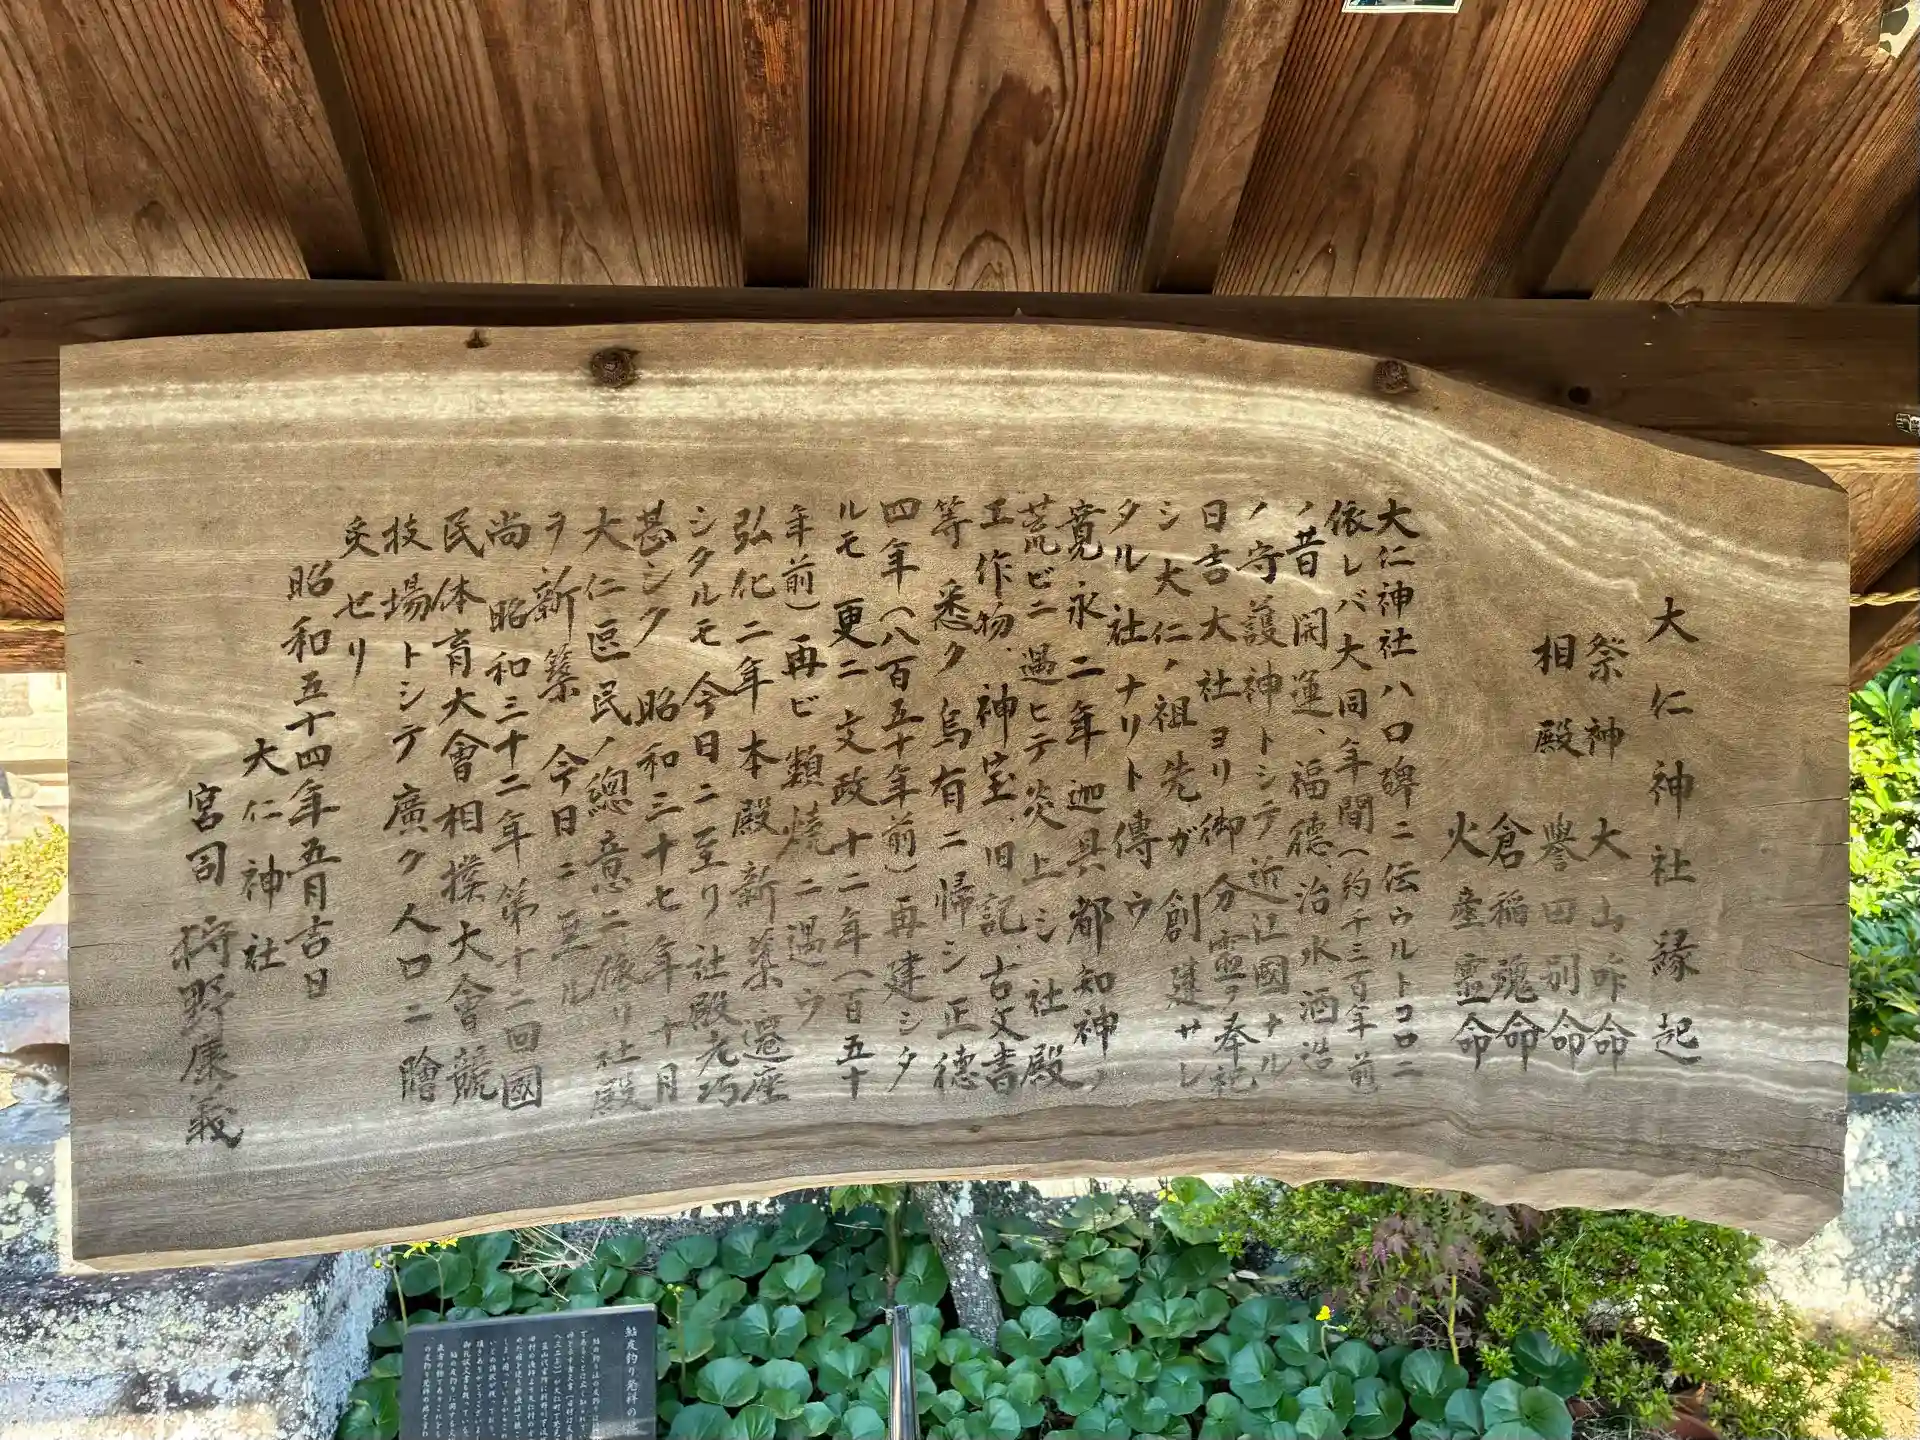 大仁神社縁起
祭神 大山咋命
相殿 譽田別命
倉稲魂命
火産霊命
大仁神社ハ口碑ニ伝ウルトコロニ
依レバ大同年間(約千三百年前
ノ昔 開運、福德、治水酒造
ノ守護神トシテ近江國ナル
日吉大社ヨリ御分霊ヲ奉祀
シ大仁ノ祖先ガ創建サレ
タル社ナリト傳ウ
寛永二年迦具都知神ノ
荒ビニ遇ヒテ炎上シ社殿
工作物、神宝、旧記、古文書
等悉ク烏有ニ帰シ正德
四年(八百五十年前)再建シタ
ルモ更ニ文政十二年(百五十
年前)再ビ類焼ニ遇ウ
弘化二年本殿新築遷座
シタルモ今日ニ至リ社殿老朽
甚シク 昭和三十七年十月
大仁区民ノ總意ニ依リ社殿
ヲ新築 今日ニ至ル
尚昭和三十二年第十二回國
民体育大會相撲大會競
技場トシテ廣ク人口ニ膾
炙セリ
昭和五十四年五月吉日
大仁神社
宮司 狩野康義
鮎友釣り発祥の